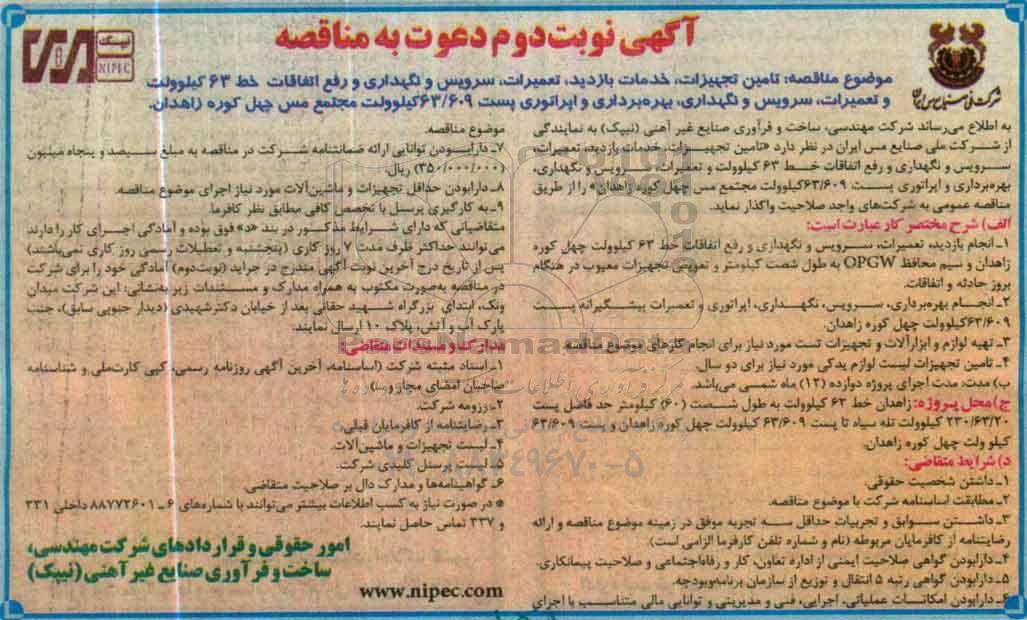 آگهی نوبت دوم دعوت به مناقصه
NIPEC
شرکت ملی صنایع مس ایران
موضوع مناقصه: تامین تجهیزات، خدمات بازدید، تعمیرات، سرویس و نگهداری و رفع اتفاقات خط ۶۳ کیلوولت
و تعمیرات، سرویس و نگهداری، بهره‌برداری و اپراتوری پست ۶۳/۶۰۹کیلوولت مجتمع مس چهل کوره زاهدان.
به اطلاع می‌رساند شرکت مهندسی، ساخت و فرآوری صنایع غیر آهنی (نیپک) به نمایندگی
از شرکت ملی صنایع مس ایران در نظر دارد «تامین تجهیزات، خدمات بازدید، تعمیرات،
سرویس و نگهداری و رفع اتفاقات خط ۶۳ کیلوولت و تعمیرات، سرویس و نگهداری،
بهره‌برداری و اپراتوری پست ۶۳/۶۰۹کیلوولت مجتمع مس چهل کوره زاهدان» را از طریق
مناقصه عمومی به شرکت‌های واجد صلاحیت واگذار نماید.
الف) شرح مختصر کار عبارت است:
۱ـ انجام بازدید، تعمیرات، سرویس و نگهداری و رفع اتفاقات خط ۶۳ کیلوولت چهل کوره
زاهدان و سیم محافظ OPGW به طول شصت کیلومتر و تعویض تجهیزات معیوب در هنگام
بروز حادثه و اتفاقات.
۲ـ انجام بهره‌برداری، سرویس، نگهداری، اپراتوری و تعمیرات پیشگیرانه پست
۶۳/۶۰۹کیلوولت چهل کوره زاهدان.
۳ـ تهیه لوازم و ابزارآلات و تجهیزات تست مورد نیاز برای انجام کارهای موضوع مناقصه.
۴ـ تامین تجهیزات لیست لوازم یدکی مورد نیاز برای دو سال.
ب) مدت: مدت اجرای پروژه دوازده (۱۲) ماه شمسی می‌باشد.
ج) محل پروژه: زاهدان خط ۶۳ کیلوولت به طول شصت (۶۰) کیلومتر حد فاصل پست
۲۳۰/۶۳/۲۰ کیلوولت تله سیاه تا پست ۶۳/۶۰۹ کیلوولت چهل کوره زاهدان و پست ۶۳/۶۰۹
کیلو ولت چهل کوره زاهدان.
د) شرایط متقاضی:
۱ـ داشتن شخصیت حقوقی.
۲ـ مطابقت اساسنامه شرکت با موضوع مناقصه.
۳ـ داشتن سوابق و تجربیات حداقل سه تجربه موفق در زمینه موضوع مناقصه و ارائه
رضایتنامه از کارفرمایان مربوطه (نام و شماره تلفن کارفرما الزامی است).
۴ـ دارابودن گواهی صلاحیت ایمنی از اداره تعاون، کار و رفاه‌اجتماعی و صلاحیت پیمانکاری.
۵ـ دارابودن گواهی رتبه ۵ انتقال و توزیع از سازمان برنامه‌وبودجه.
۶ـ دارابودن امکانات عملیاتی، اجرایی، فنی و مدیریتی و توانایی مالی متناسب با اجرای
موضوع مناقصه.
۷ـ دارابودن توانایی ارائه ضمانتنامه شرکت در مناقصه به مبلغ سیصد و پنجاه میلیون
(۳۵۰/۰۰۰/۰۰۰) ریال.
۸ـ دارابودن حداقل تجهیزات و ماشین‌آلات مورد نیاز اجرای موضوع مناقصه.
۹ـ به کارگیری پرسنل با تخصص کافی مطابق نظر کارفرما.
متقاضیانی که دارای شرایط مذکور در بند «د» فوق بوده و آمادگی اجرای کار را دارند
می‌توانند حداکثر ظرف مدت ۷ روز کاری (پنجشنبه و تعطیلات رسمی روز کاری نمی‌باشند)
پس از تاریخ درج آخرین نوبت آگهی مندرج در جراید (نوبت‌دوم) آمادگی خود را برای شرکت
در مناقصه به‌صورت مکتوب به همراه مدارک و مستندات زیر به‌نشانی: این شرکت میدان
ونک، ابتدای بزرگراه شهید حقانی بعد از خیابان دکترشهیدی (دیدار جنوبی سابق)، جنب
پارک آب و آتش، پلاک ۱۰ ارسال نمایند.
مدارک و مستندات متقاضی:
۱ـ اسناد مثبته شرکت (اساسنامه، آخرین آگهی روزنامه رسمی، کپی کارت‌ملی و شناسنامه
صاحبان امضای مجاز و...)
۲ـ رزومه شرکت.
۳ـ رضایتنامه از کارفرمایان قبلی.
۴ـ لیست تجهیزات و ماشین‌آلات.
۵ـ لیست پرسنل کلیدی شرکت.
۶ـ گواهینامه‌ها و مدارک دال بر صلاحیت متقاضی.
* در صورت نیاز به کسب اطلاعات بیشتر می‌توانند با شماره‌های ۶ ـ ۸۸۷۷۲۶۰۱ داخلی ۳۳۱
و ۳۳۷ تماس حاصل نمایند.
امور حقوقی و قراردادهای شرکت مهندسی،
ساخت و فرآوری صنایع غیر آهنی (نیپک)
www.nipec.com